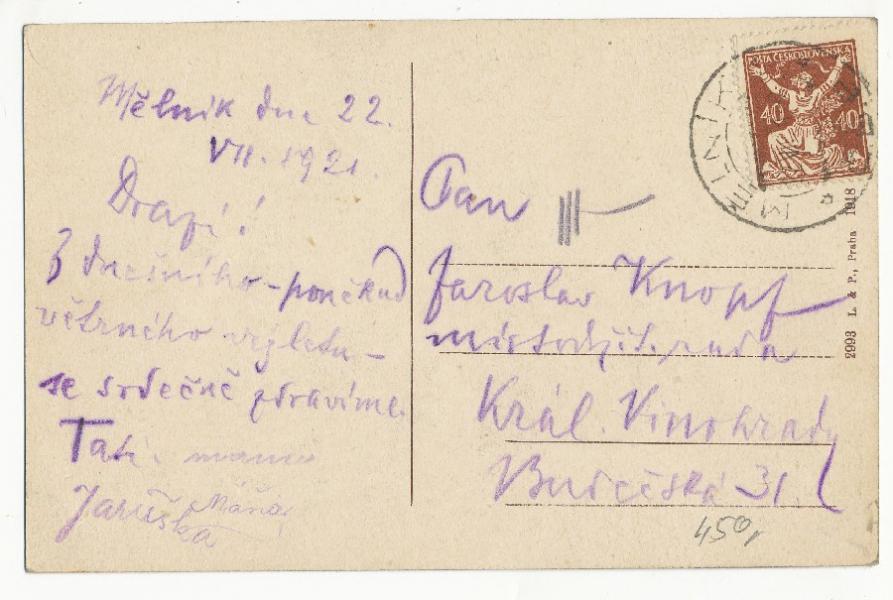 Mělník dne 22.
VII. 1921.
Drazí!
Z dnešního – poněkud
větrného výletu –
se srdečně zdravíme.
Tatí. mama
Máňa,
Jaruška
POSTA ČESKOSLOVENSKÁ
40 40
MĚLNÍK
Pan
Jaroslav Knopf
místodržit. rada
Král. Vinohrady
Budečská 31.
450,
2993 L. & P., Praha 1918